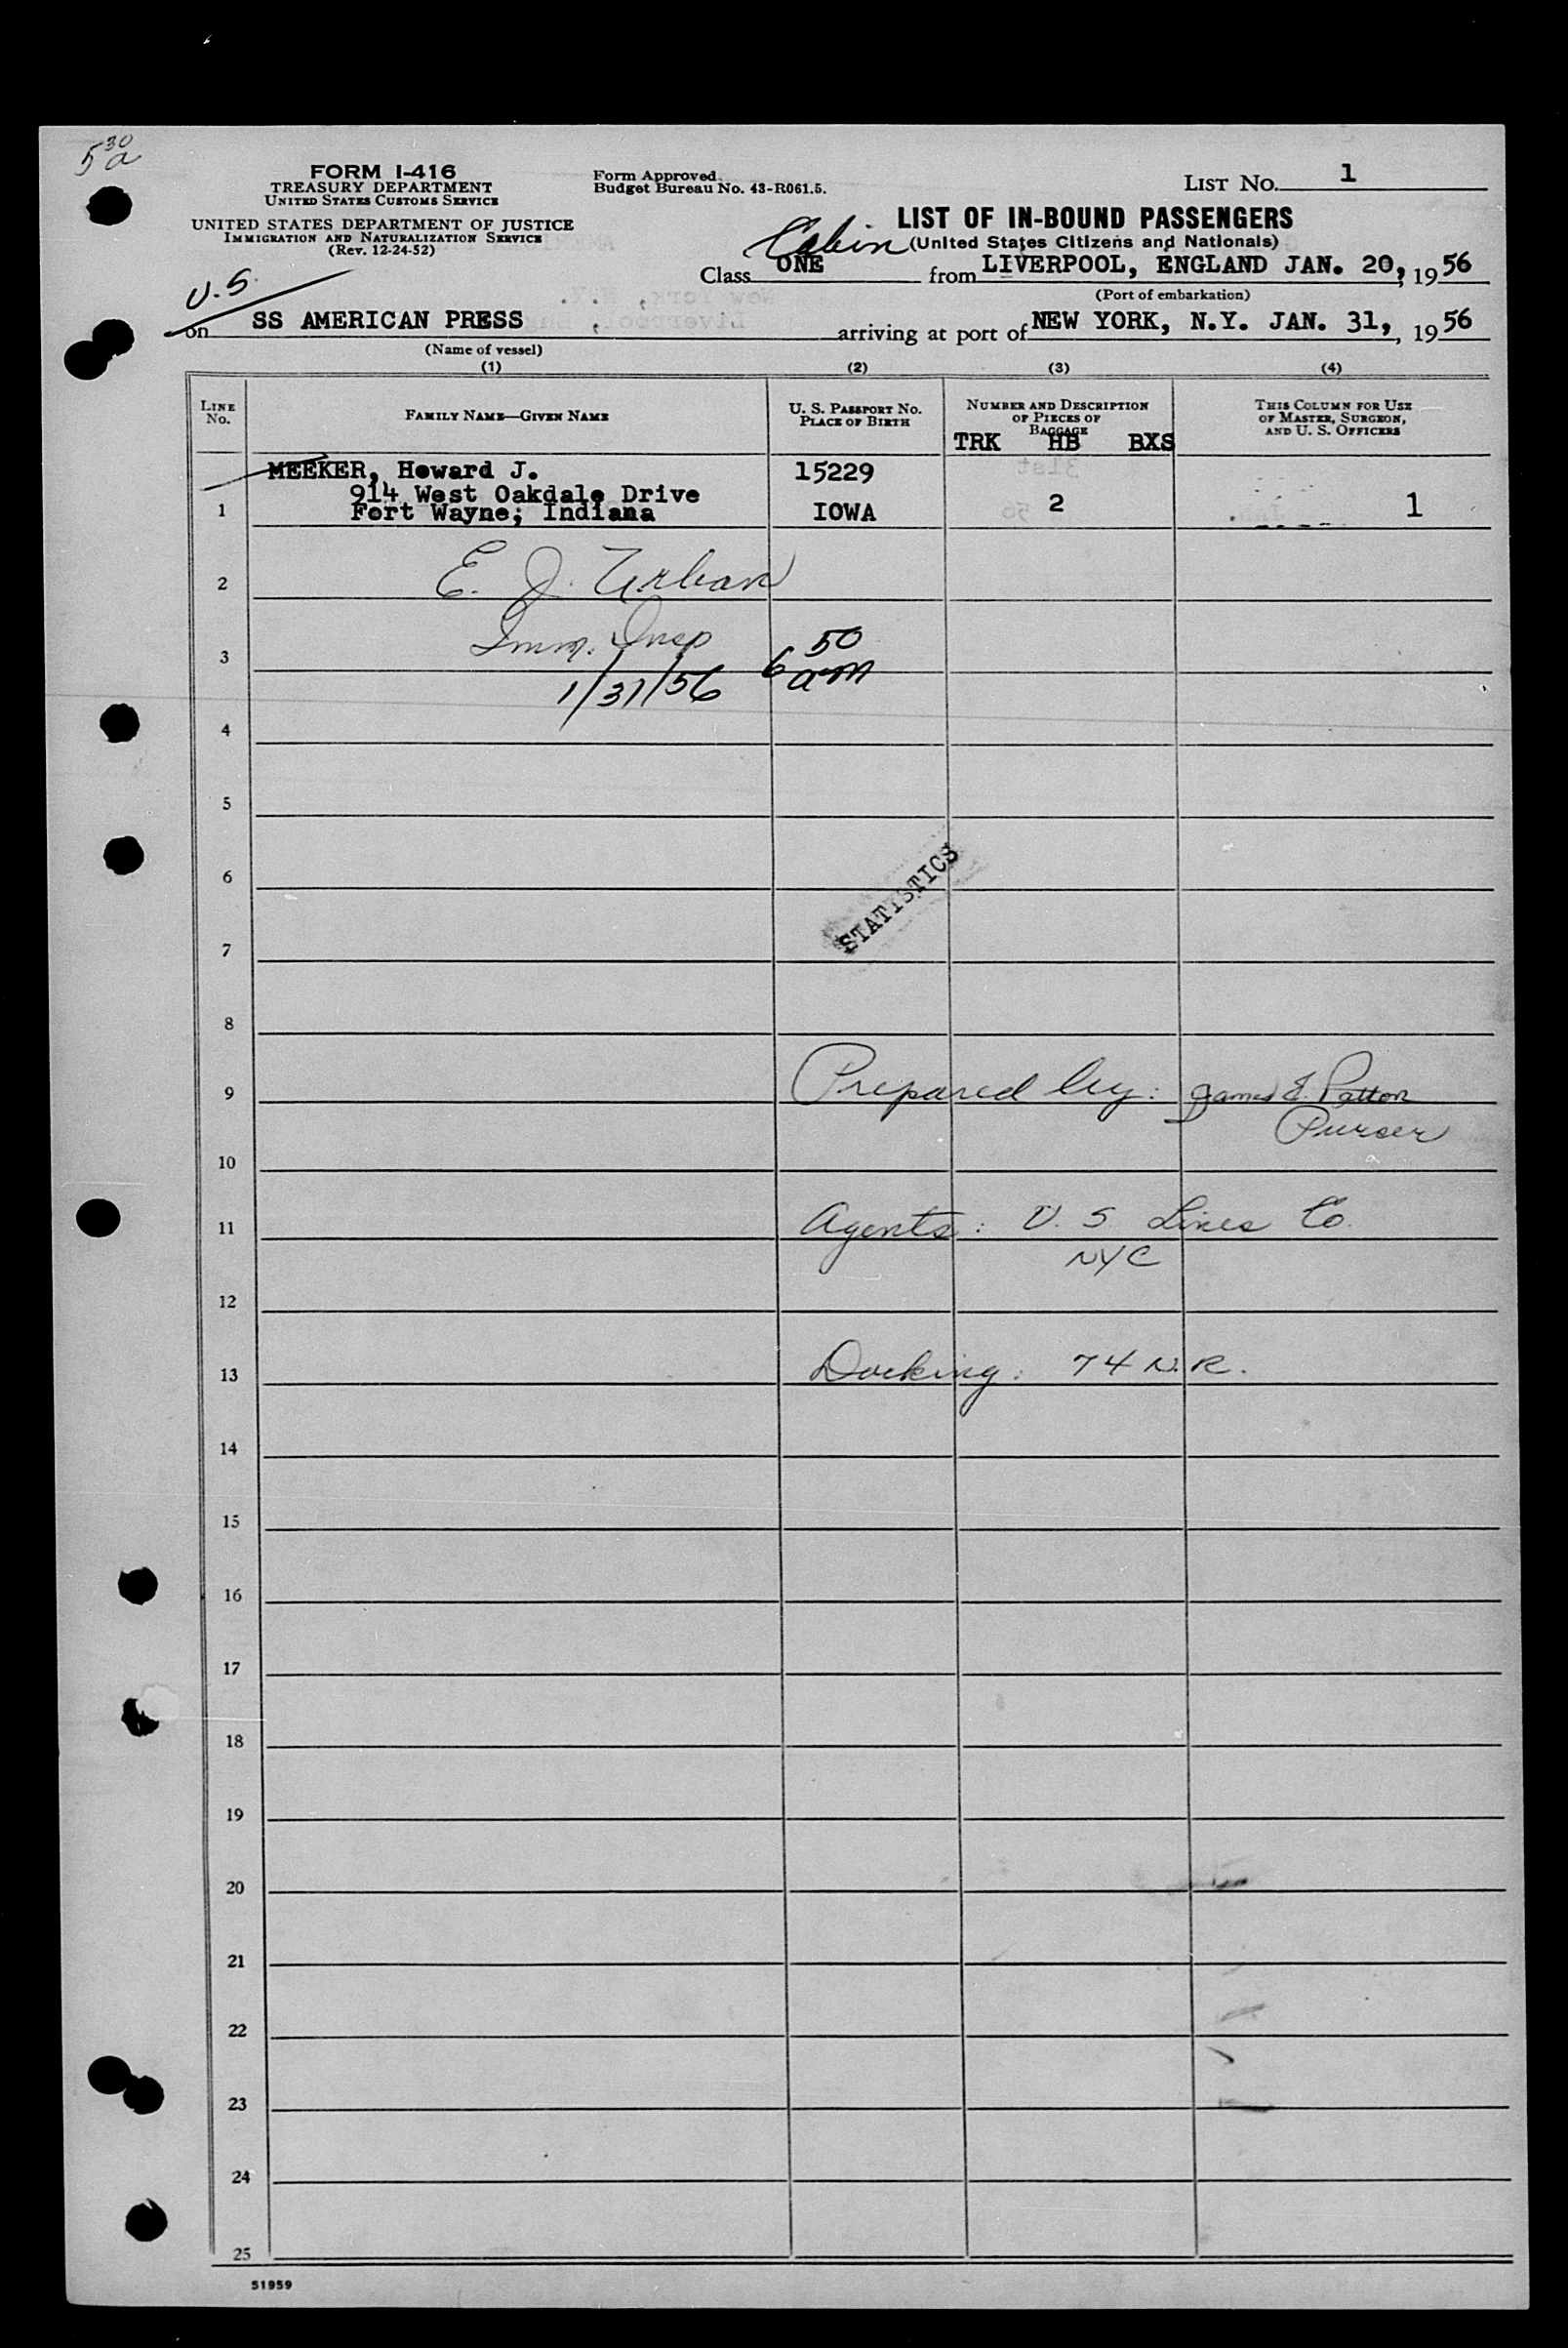 5 30 a
FORM I-416
TREASURY DEPARTMENT
UNITED STATES CUSTOMS SERVICE
UNITED STATES DEPARTMENT OF JUSTICE
IMMIGRATION AND NATURALIZATION SERVICE
(Rev. 12-24-52)
Form Approved.
Budget Bureau No. 43-R061.5.
LIST NO. 1
LIST OF IN-BOUND PASSENGERS
(United States Citizens and Nationals)
Cabin
Class ONE from LIVERPOOL, ENGLAND JAN. 20, 1956
(Port of embarkation)
U.S.
on SS AMERICAN PRESS, arriving at port of NEW YORK, N.Y. JAN. 31, 1956
(Name of vessel)
(1) (2) (3) (4)
LINE NO. FAMILY NAME—GIVEN NAME U. S. PASSPORT NO. PLACE OF BIRTH NUMBER AND DESCRIPTION OF PIECES OF BAGGAGE THIS COLUMN FOR USE OF MASTER, SURGEON, AND U. S. OFFICERS
TRK HB BXS
MEEKER, Howard J. 15229
914 West Oakdale Drive
1 Fort Wayne; Indiana IOWA 2 1
2 E. J. Urban
3 Imm. Insp 6 50 am
1/31/56
4
5
6
STATISTICS
7
8
9 Prepared by: James E. Patton
Purser
10
11 Agents: U. S Lines Co.
NYC
12
13 Docking: 74 N.R.
14
15
16
17
18
19
20
21
22
23
24
25
51959